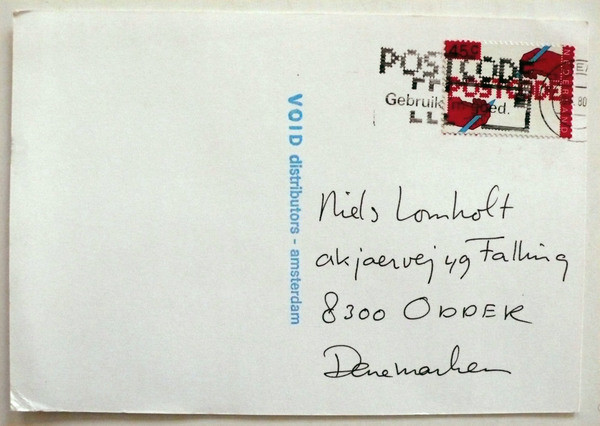 POSTCODE
Gebruik 'm goed.
45c
POSTCODE
NEDERLAND
80
VOID distributors - amsterdam
Niels Lomholt
akjaervej 49 Falling
8300 ODDER
Denemarken